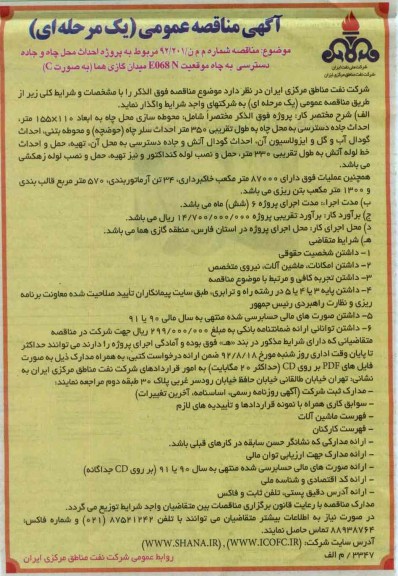 آگهی مناقصه عمومی (یک مرحله ای)
شرکت ملی نفت ایران
شرکت نفت مناطق مرکزی ایران
موضوع: مناقصه شماره م م ن/۹۲/۲۰۱ مربوط به پروژه احداث محل چاه و جاده
دسترسی به چاه موقعیت E068 N میدان گازی هما (به صورت C)
شرکت نفت مناطق مرکزی ایران در نظر دارد موضوع مناقصه فوق الذکر را با مشخصات و شرایط کلی زیر از
طریق مناقصه عمومی (یک مرحله ای) به شرکتهای واجد شرایط واگذار نماید.
الف) شرح مختصر کار: پروژه فوق الذکر مختصراً شامل: محوطه سازی محل چاه به ابعاد ۱۱۰×۱۵۵ متر،
احداث جاده دسترسی به محل چاه به طول تقریبی ۳۵۰ متر احداث سلر چاه (حوضچه) و محوطه بتنی، احداث
گودال آب و گل و ایزولاسیون آن، احداث گودال آتش و جاده دسترسی به محل آن، تهیه، حمل و احداث
خط لوله آتش به طول تقریبی ۳۳۰ متر، حمل و نصب لوله کنداکتور و نیز تهیه، حمل و نصب لوله زهکشی
می باشد.
همچنین عملیات فوق دارای ۸۷۰۰۰ متر مکعب خاکبرداری، ۳۴ تن آرماتوربندی، ۵۷۰ متر مربع قالب بندی
و ۱۳۰۰ متر مکعب بتن ریزی می باشد.
ب) مدت اجرا: مدت اجرای پروژه ۶ (شش) ماه می باشد.
ج) برآورد کار: برآورد تقریبی پروژه ۱۴/۷۰۰/۰۰۰/۰۰۰ ریال می باشد.
د) محل اجرای کار: محل اجرای پروژه در استان فارس، منطقه گازی هما می باشد.
هـ) شرایط متقاضی
۱- داشتن شخصیت حقوقی
۲- داشتن امکانات، ماشین آلات، نیروی متخصص
۳- داشتن تجربه کافی و مرتبط با موضوع مناقصه
۴- داشتن پایه ۳ یا ۴ یا ۵ در رشته راه و ترابری، طبق سایت پیمانکاران تأیید صلاحیت شده معاونت برنامه
ریزی و نظارت راهبردی رئیس جمهور
۵- داشتن صورت های مالی حسابرسی شده منتهی به سال مالی ۹۰ یا ۹۱
۶- داشتن توانایی ارائه ضمانتنامه بانکی به مبلغ ۲۹۹/۰۰۰/۰۰۰ ریال جهت شرکت در مناقصه
متقاضیانی که دارای شرایط مذکور در بند «هـ» فوق بوده و آمادگی اجرای پروژه را دارند می توانند حداکثر
تا پایان وقت اداری روز شنبه مورخ ۹۲/۸/۱۸ ضمن ارائه درخواست کتبی، به همراه مدارک ذیل به صورت
فایل های PDF بر روی CD (حداکثر ۲۰ مگابایت) به امور قراردادهای شرکت نفت مناطق مرکزی ایران به
نشانی: تهران خیابان طالقانی خیابان حافظ خیابان رودسر غربی پلاک ۳۰ طبقه دوم مراجعه نمایند:
- مدارک ثبت شرکت (آگهی روزنامه رسمی، اساسنامه، آخرین تغییرات)
- سوابق کاری همراه با نمونه قراردادها و تاییدیه های لازم
- فهرست ماشین آلات
- فهرست کارکنان
- ارائه مدارکی که نشانگر حسن سابقه در کارهای قبلی باشد.
- ارائه مدارک جهت ارزیابی توان مالی
- ارائه صورت های مالی حسابرسی شده منتهی به سال ۹۰ یا ۹۱ (بر روی CD جداگانه)
- ارائه کد اقتصادی و شناسه ملی
- ارائه آدرس دقیق پستی، تلفن ثابت و فاکس
مدارک مناقصه با رعایت قانون برگزاری مناقصات بین متقاضیان واجد شرایط توزیع می گردد.
در صورت نیاز به اطلاعات بیشتر متقاضیان می توانند با تلفن ۸۷۵۲۱۲۴۲ (۰۲۱) و شماره فاکس:
۸۸۹۳۸۷۶۴ تماس حاصل نمایند.
آدرس سایت شرکت: (WWW.ICOFC.IR) , (WWW.SHANA.IR)
۳۳۴۷ / م الف
روابط عمومی شرکت نفت مناطق مرکزی ایران